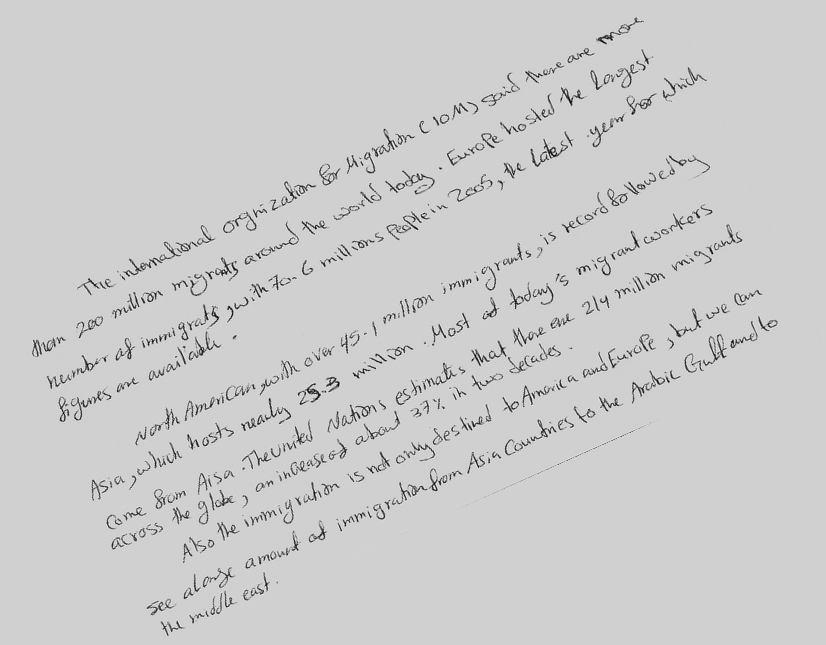 The international orgnization for Migration (IOM) said there are more
than 200 million migrants around the world today. Europe hosted the Longest
number of immigrats, with 70.6 millions people in 2005, the Latest year for which
figures are available.
North American, with over 45.1 million immigrants, is record followed by
Asia, which hosts nearly 25.3 million. Most of today's migrant workers
Come from Aisa. The United Nations estimates that there are 214 million migrants
across the globe, an increase of about 37% in two decades.
Also the immigration is not only destined to America and Europe, but we can
see a large amount of immigration from Asia Countries to the Arabic Gulf and to
the middle east.